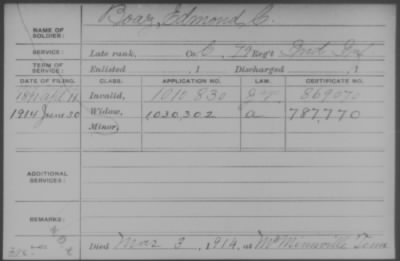 NAME OF SOLDIER: Boaz, Edmond C.
SERVICE: Late rank, Co. C, 79 Reg't Ind Inf
TERM OF SERVICE: Enlisted , 1 Discharged , 1
DATE OF FILING. CLASS. APPLICATION NO. LAW. CERTIFICATE NO.
1891 Invalid, 1010.830 869070
1914 June 30 Widow, 1030,302 a 787,770
Minor,
ADDITIONAL SERVICES:
REMARKS:
Died Mar 3, 1914, at McMinnville Tenn